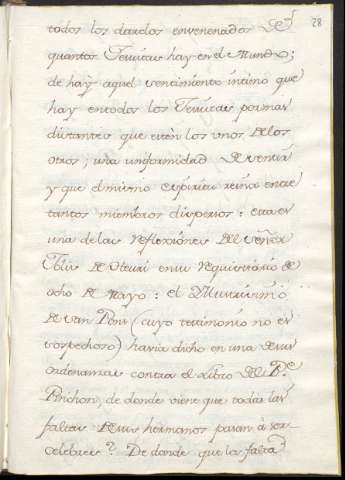 28
todos los dardos envenenados de
quantos Jesuitas hay en el Mundo;
de hay aquel sentimiento intimo que
hay en todos los Jesuitas por mas
distantes que esten los unos de los
otros; una uniformidad de sentir
y que el mismo espiritu reina entre
tantos miembros dispersos: esta es
una de las reflexiones del señor
de en su requisitorio de
ocho de Mayo: el
de San Pons (cuyo testimonio no es
sospechoso) havia dicho en una de sus
ordenanzas contra el Libro del Pe.
Pinchon, de donde viene que todas las
faltas de sus hermanos paran á ser
celebres? De donde que la falta